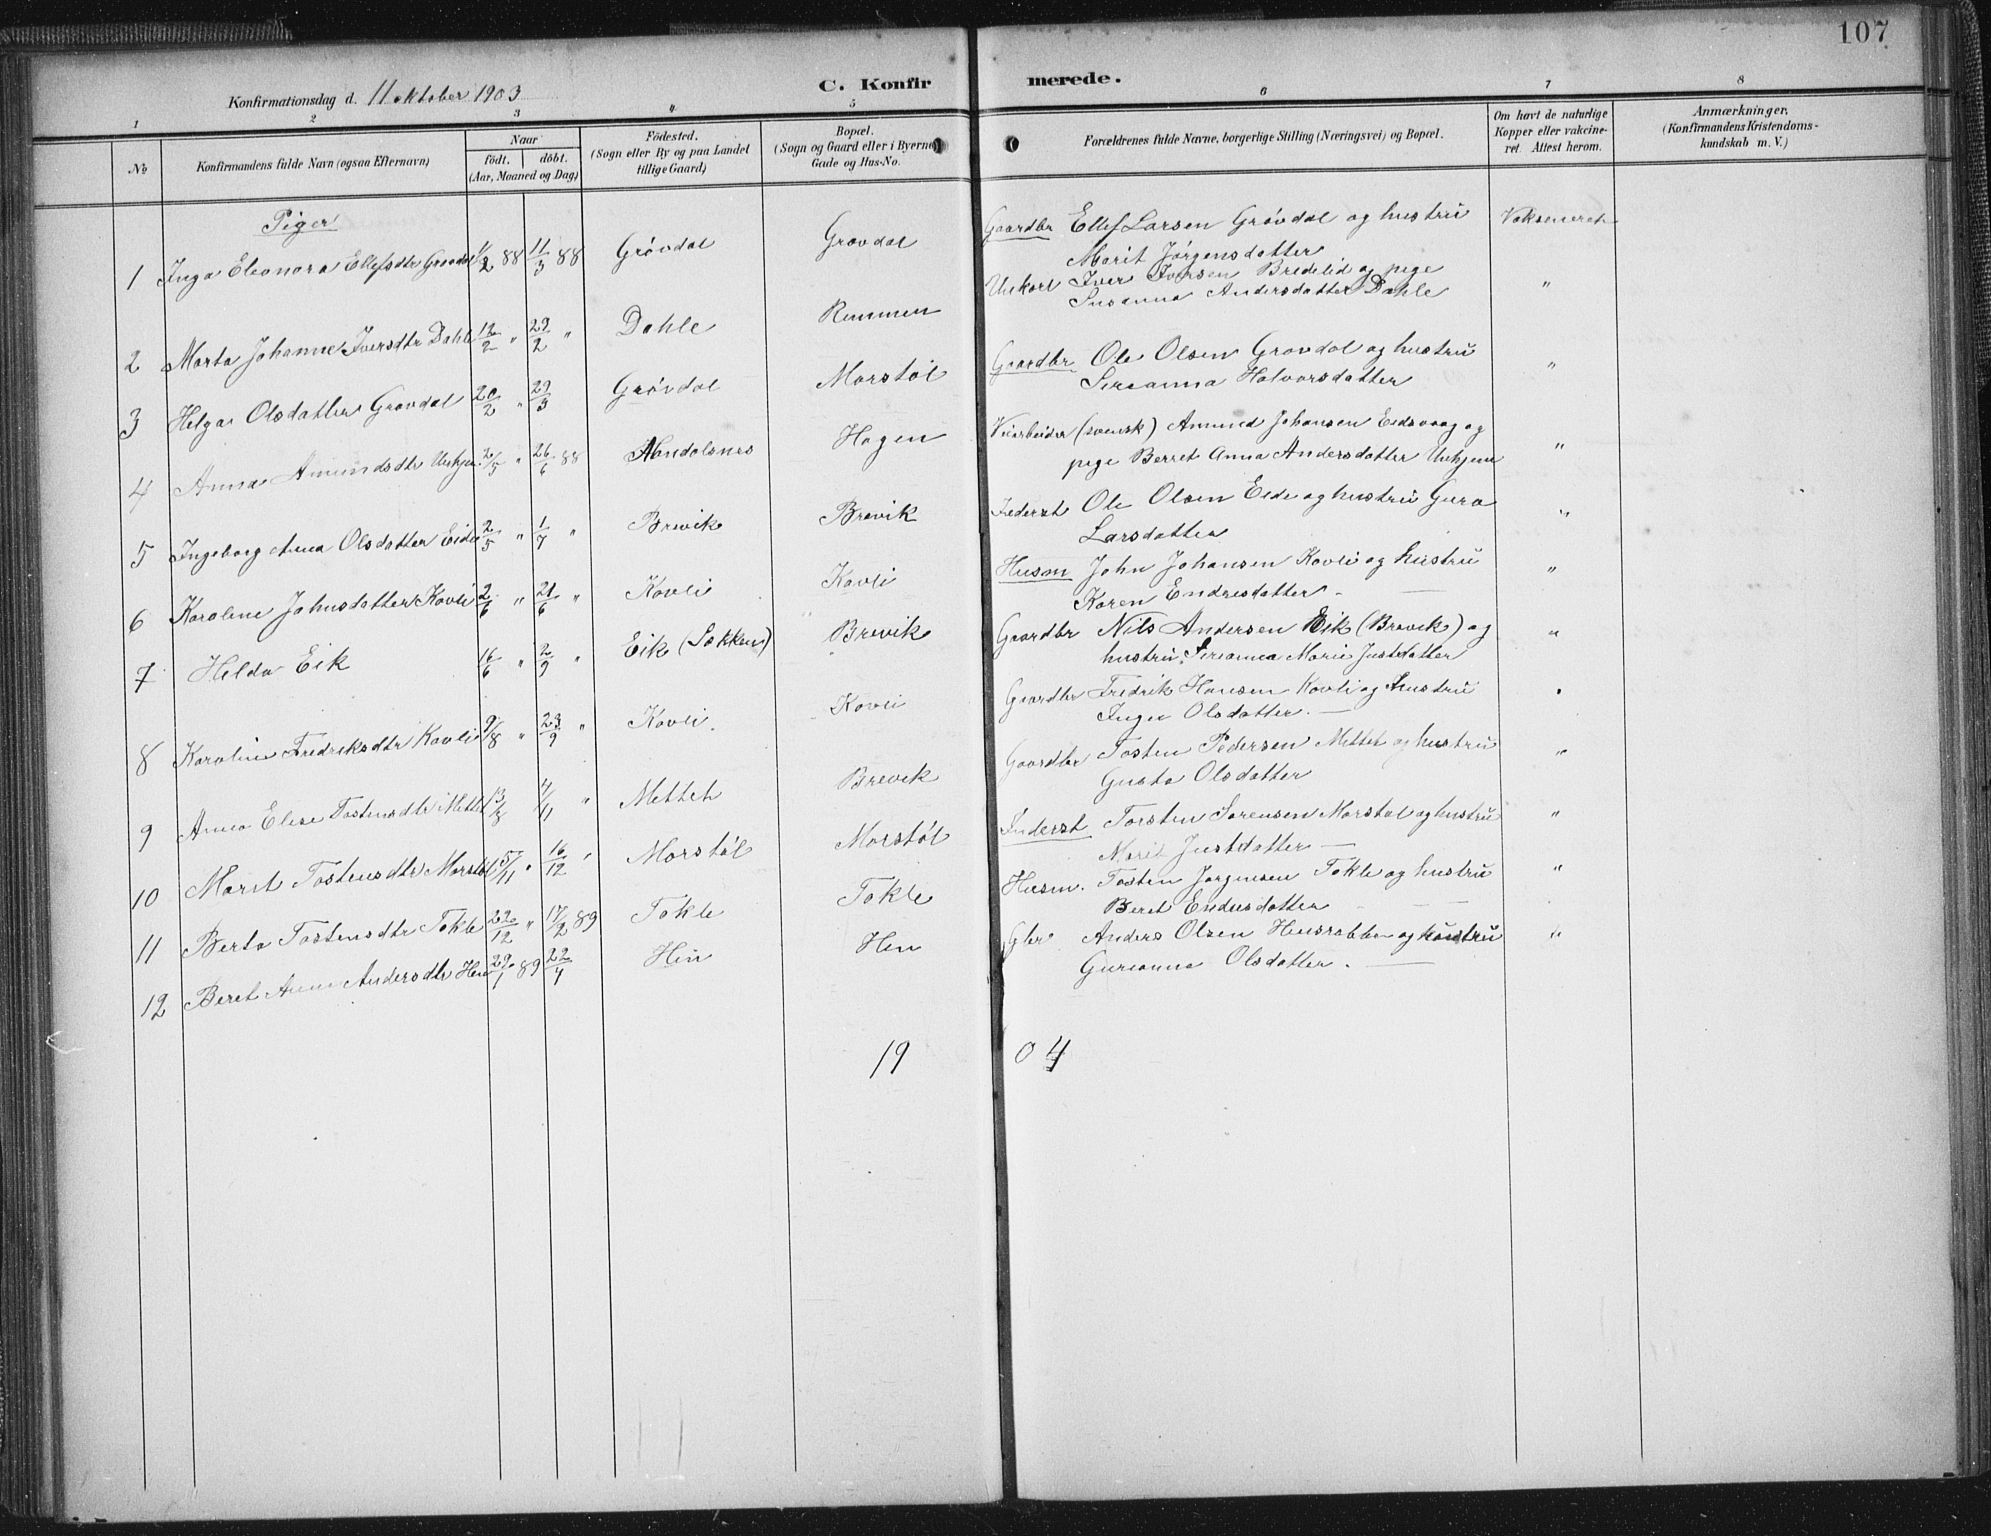 107
C. Konfirmerede.
Konfirmationsdag d. 11 oktober 1903
1 2 3 4 5 6 7 8
No
Konfirmandens fulde Navn (ogsaa Efternavn)
Naar
födt. döbt.
(Aar, Maaned og Dag)
Födested.
(Sogn eller By og paa Landet
tillige Gaard)
Bopæl.
(Sogn og Gaard eller i Byerne
Gade og Hus-No.
Forældrenes fulde Navne, borgerlige Stilling (Næringsvei) og Bopæl.
Om havt de naturlige
Kopper eller vakcine-
ret. Attest herom.
Anmærkninger.
(Konfirmandens Kristendoms-
kundskab m. V.)
Piger
1 Inga Eleonora Ellefsdtr Grøvdal 88 11/3 88 Grøvdal Grøvdal Gaardbr Ellef Larsen Grøvdal og hustru Vaksineret
Marit Jørgensdatter
2 Marta Johanne Iversdtr Dahle 12/2 " 29/2 " Dahle Remmen Unkarl Iver Iversen Bredelid og pige "
Susanna Andersdatter Dahle
3 Helga Olsdatter Grøvdal 20/2 " 29/3 Grøvdal Morstøl Gaardbr Ole Olsen Grøvdal og hustru "
Sirianna Halvorsdatter
4 Anna Amundsdtr 2/5 " 26/6 88 Aandalsnes Hagen Veiarbeider (svensk) Amund Johansen Eidsvaag og "
pige Berret Anna Andersdatter Unhjem
5 Ingeborg Anna Olsdatter Eide 2/5 " 1/7 " Brevik Brevik Inderst Ole Olsen Eide og hustru Gura "
Larsdatter
6 Karoline Johnsdatter Kavli 2/6 " 21/6 " Kavli Kavli Husm John Johansen Kavli og hustru "
Karen Endresdatter
7 Helda Eik 16/6 " 2/9 " Eik (Løkken) Brevik Gaardbr Nils Andersen Eik (Brevik) og "
hustru Sirianna Marie Justdatter
8 Karoline Fredriksdtr Kavli 9/8 " 23/9 " Kavli Kavli Gaardbr Fredrik Hansen Kavli og hustru "
Inger Olsdatter
9 Anna Elise Tostensdtr Mettet 13/8 4/11 " Mettet Brevik Gaardbr Tosten Pedersen Mettet og hustru "
Gusta Olsdatter
10 Marit Tostensdtr Morstøl 5/11 " 16/12 " Morstøl Morstøl Inderst Torsten Sørensen Morstøl og hustru "
Marit Justdatter
11 Berta Tostensdtr Tokle 22/12 " 17/2 89 Tokle Tokle Husm. Tosten Jørgensen Tokle og hustru "
Beret Endresdatter
12 Beret Anna Andersdtr Hen 29/1 89 22/4 Hen Hen Gbr Anders Olsen Hensrabben og hustru "
Gurianna Olsdatter
19 04